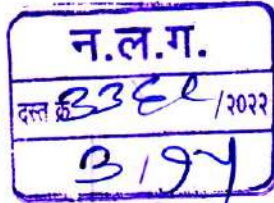 न.ल.ग.
दस्त क्र ३३६९ /२०२२
३/१५